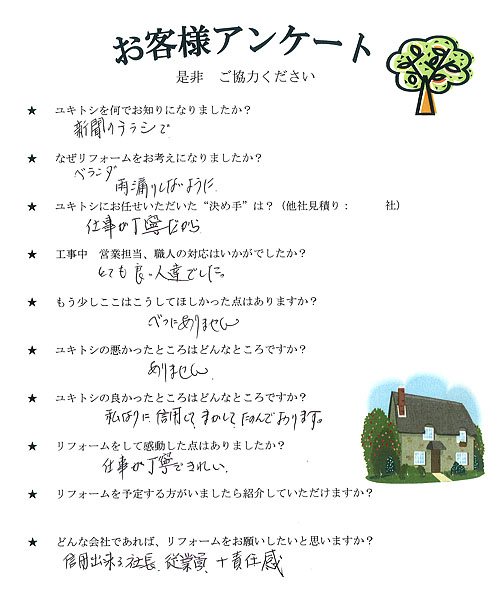 お客様アンケート
是非　ご協力ください
★ ユキトシを何でお知りになりましたか？
新聞のチラシで
★ なぜリフォームをお考えになりましたか？
ベランダ
雨漏りしないように
★ ユキトシにお任せいただいた“決め手”は？（他社見積り：　　　社）
仕事が丁寧だから
★ 工事中　営業担当、職人の対応はいかがでしたか？
とても良い人達でした。
★ もう少しここはこうしてほしかった点はありますか？
べつにありません
★ ユキトシの悪かったところはどんなところですか？
ありません
★ ユキトシの良かったところはどんなところですか？
私なりに信用してまかしてたのんでおります。
★ リフォームをして感動した点はありましたか？
仕事が丁寧できれい
★ リフォームを予定する方がいましたら紹介していただけますか？
★ どんな会社であれば、リフォームをお願いしたいと思いますか？
信用出来る社長、従業員、十責任感